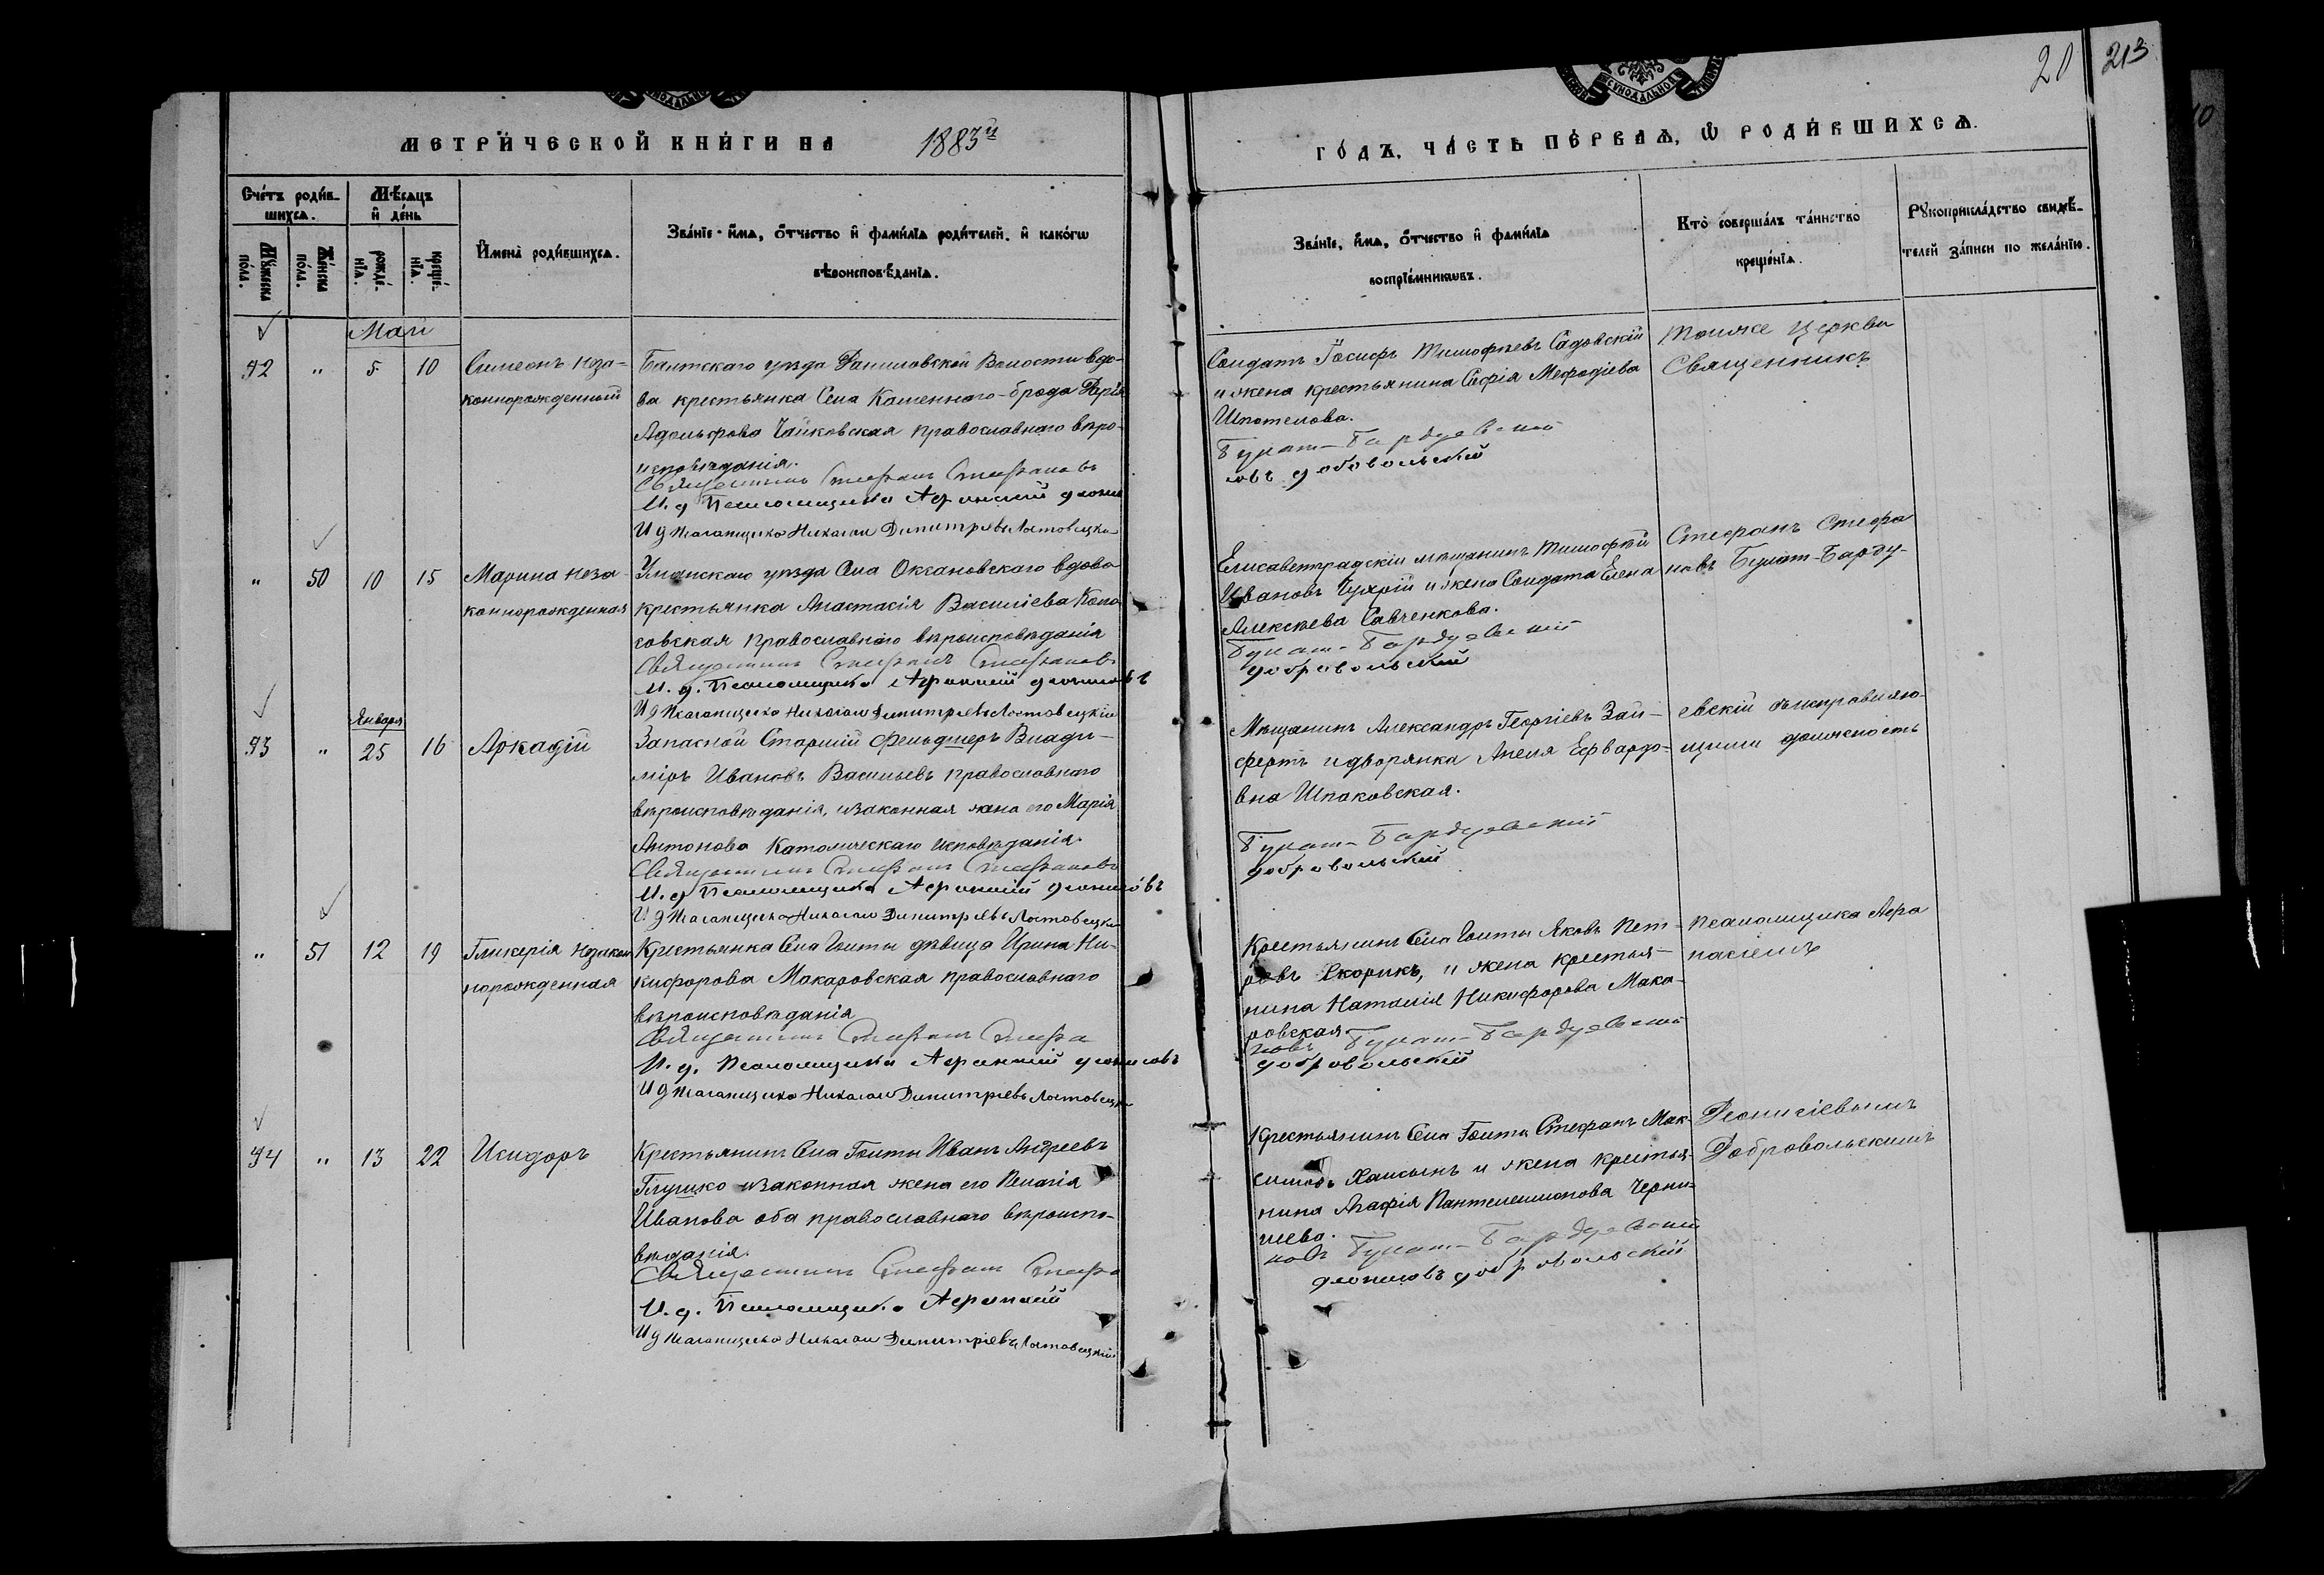 20 213
МЕТРИЧЕСКОЙ КНИГИ НА 1883й ГОДЪ, ЧАСТЬ ПЕРВАЯ, Ѡ РОДИВШИХСЯ.
Счетъ родив-
шихся.
Мѣсяцъ
и день
Мужеска
пола.
Женска
пола.
рожде-
нія.
креще-
нія.
Имена родившихся.
Званіе, имя, отчество и фамилія родителей, и какогѡ
вѣроисповѣданія.
Званіе, имя, отчество и фамилія
воспріемниковъ.
Кто совершалъ таинство
крещенія.
Рукоприкладство свидѣ-
телей записи по желанію.
Май
92 " 5 10
Симеонъ неза-
коннорожденный
Балтскаго уѣзда Даниловской Волости вдо-
ва крестьянка Села Каменнаго-брода Дарія
Адольфова Чайковская православнаго вѣро-
исповѣданія.
Священникъ Стефанъ Стефановъ
И. д. Псаломщика Афанасій
И д Псаломщика Николай Димитріевъ Лостовецкій
Солдатъ Іосифъ Тимофѣевъ Садовскій
и жена крестьянина Софія Мефодіева
Шпотелова.
Булат-Бардуевскій
Добровольскій
Тоижe Церкви
Священникъ
" 50 10 15
Марина неза-
коннорожденная
Уманскаго уѣзда Села Оксановскаго вдова
крестьянка Анастасія Василіева Коло-
совская православнаго вѣроисповѣданія
Священникъ Стефанъ Стефановъ
И. д. Псаломщика Афанасій Діонисовъ
И д Псаломщика Николай Димитріевъ Лостовецкій
Елисаветградскій мѣщанинъ Тимофѣй
Ивановъ Чухрій и жена Солдата Елена
Алексѣева Савченкова.
Булат-Бардуевскій
Добровольскій
Стефанъ Стефа
новъ Булат-Барду-
Января
93 " 25 16
Аркадій
Запасной Старшій Фельдшеръ Влади-
міръ Ивановъ Васильевъ православнаго
вѣроисповѣданія, и законная жена его Марія
Антонова Католическаго исповѣданія.
Священникъ Стефанъ Стефановъ
И. д. Псаломщика Афанасій Діонисовъ
И д Псаломщика Николай Димитріевъ Лостовецкій
Мѣщанинъ Александръ Георгіевъ Зай-
фертъ и дворянка Анеля Эдвардо-
вна Шпаковская.
Булат-Бардуевскій
Добровольскій
евскій съ исправляю-
щимъ должность
" 51 12 19
Гликерія незакон
норожденная
Крестьянка Села Голты дѣвица Ирина Ни-
кифорова Макаровская православнаго
вѣроисповѣданія
Священникъ Стефанъ Стефа
И. д. Псаломщика Афанасій Діонисовъ
И д Псаломщика Николай Димитріевъ Лостовецкій
Крестьянинъ Села Голты Яковъ Пет-
ровъ Скорикъ, и жена крестья-
нина Наталія Никифорова Мака-
ровская.
новъ Булат-Бардуевскій
Добровольскій
псаломщика Афа
насіемъ
94 " 13 22
Исидоръ
Крестьянинъ Села Голты Иванъ Андреевъ
Глушко и законная жена его Пелагія
Иванова оба православнаго вѣроиспо-
вѣданія.
Священникъ Стефанъ Стефа
И. д. Псаломщика Афанасій
И д Псаломщика Николай Димитріевъ Лостовецкій
Крестьянинъ Села Голты Стефанъ Мак-
симовъ и жена крестья-
нина Агафія Пантелеимонова Черни-
шева.
новъ Булат-Бардуевскій
Діонисовъ Добровольскій
Діонисіевымъ
Добровольскимъ